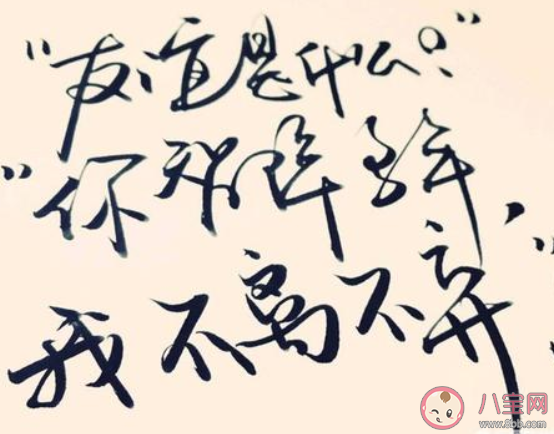 "友谊是什么?"
"你
我不离不弃"
八宝网
www.8bb.com